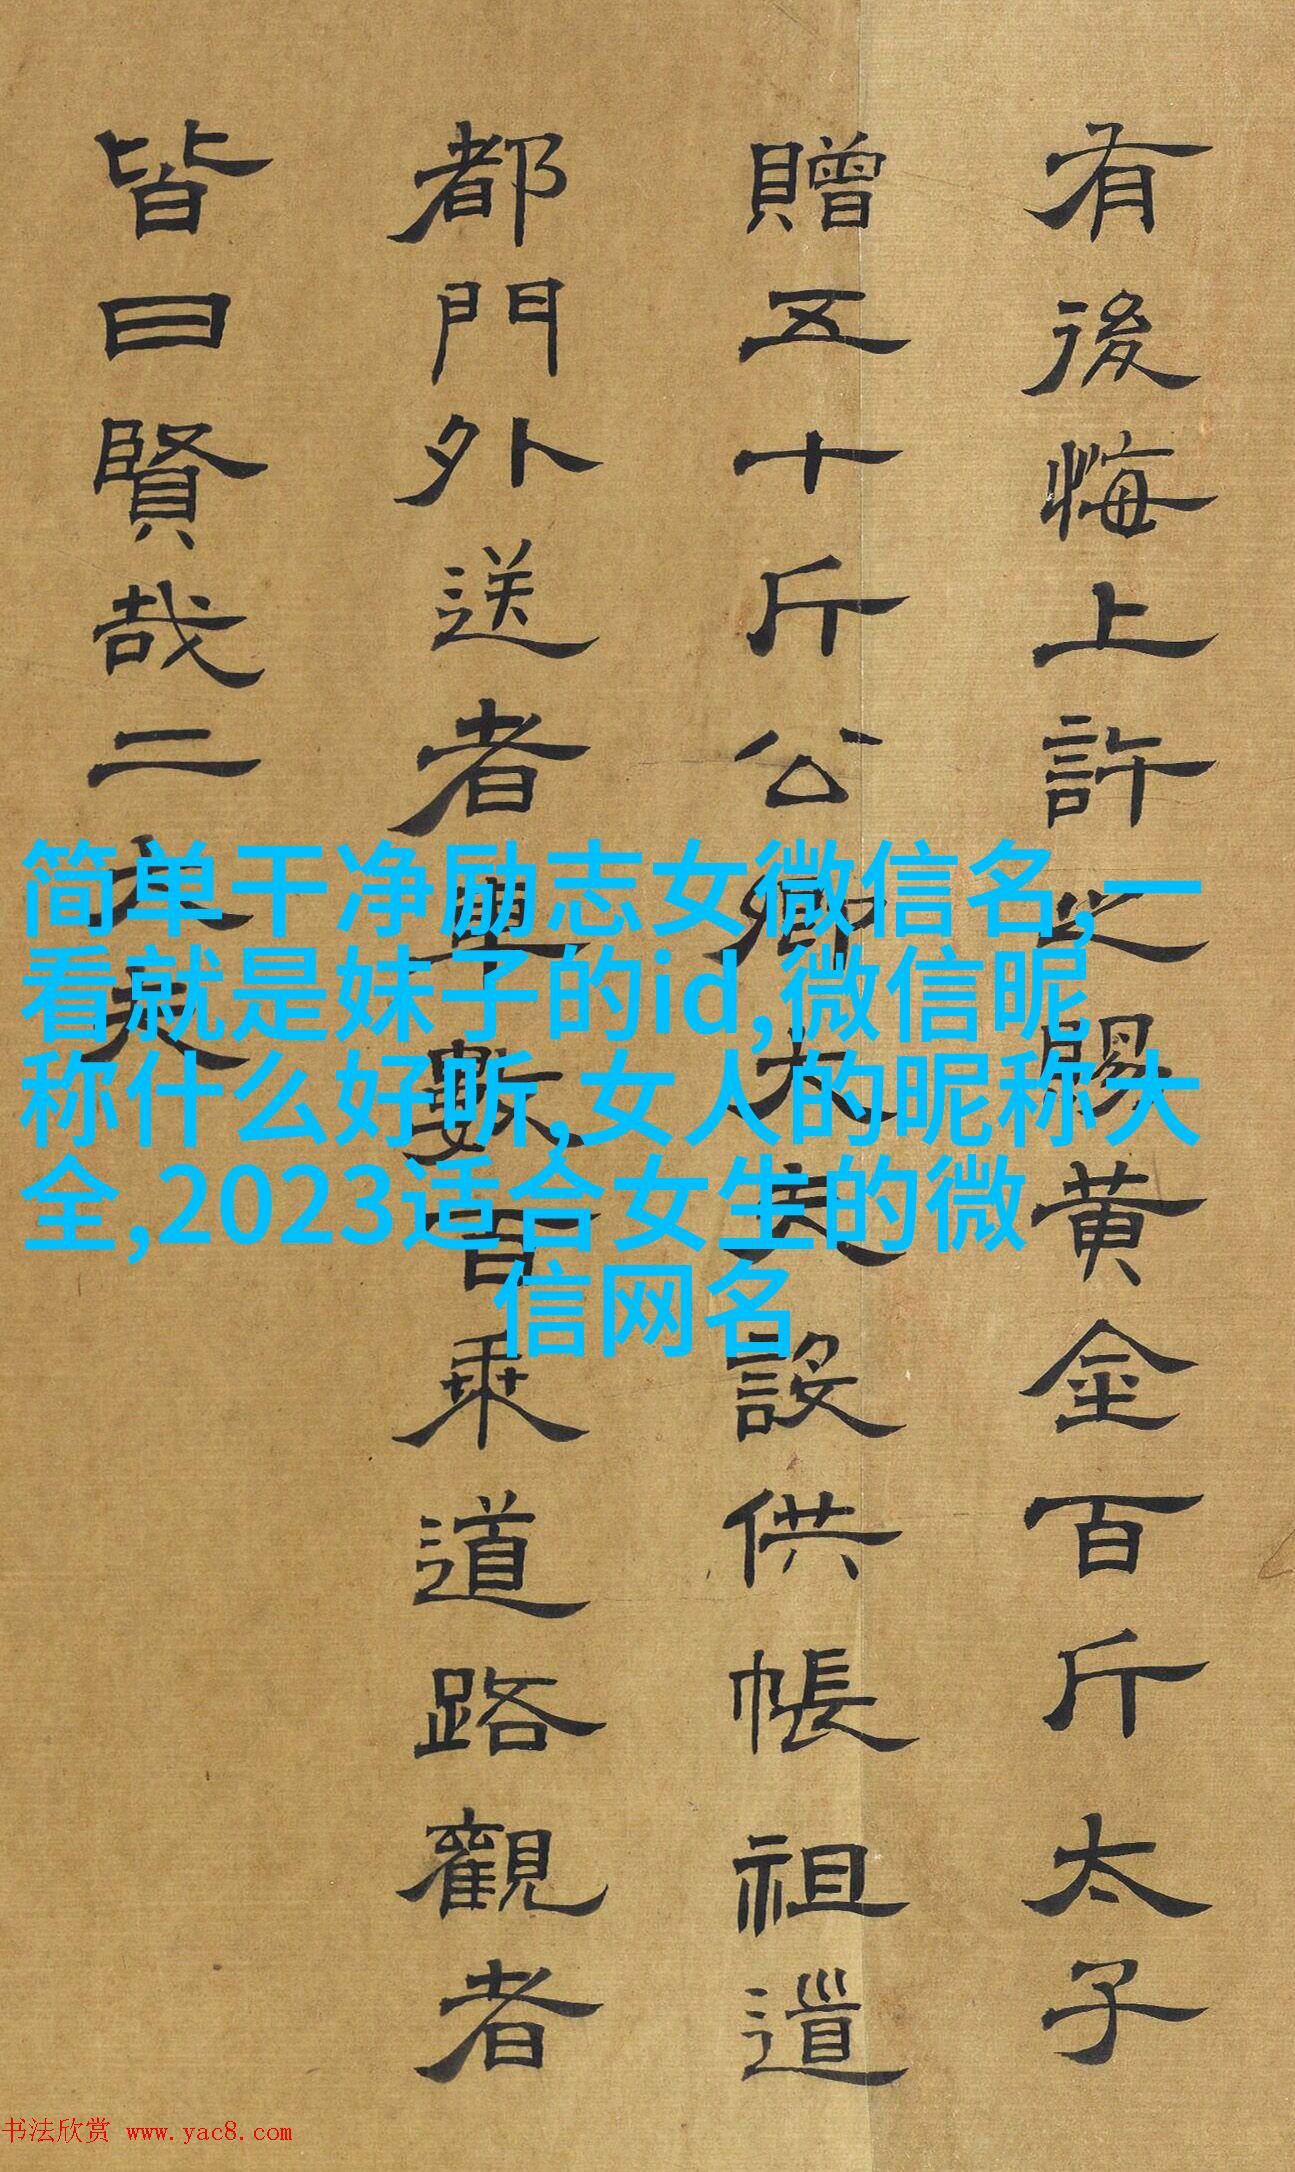 有後悔上許之賜黃金百斤太子
贈五十斤公卿大夫設供帳祖道
都門外送者車數百乘道路觀者
皆曰賢哉二大夫
简单干净励志女微信名,一
看就是妹子的id,微信昵
称什么好听,女人的昵称大
全,2023适合女生的微
信网名
书法欣赏 www.yac8.com